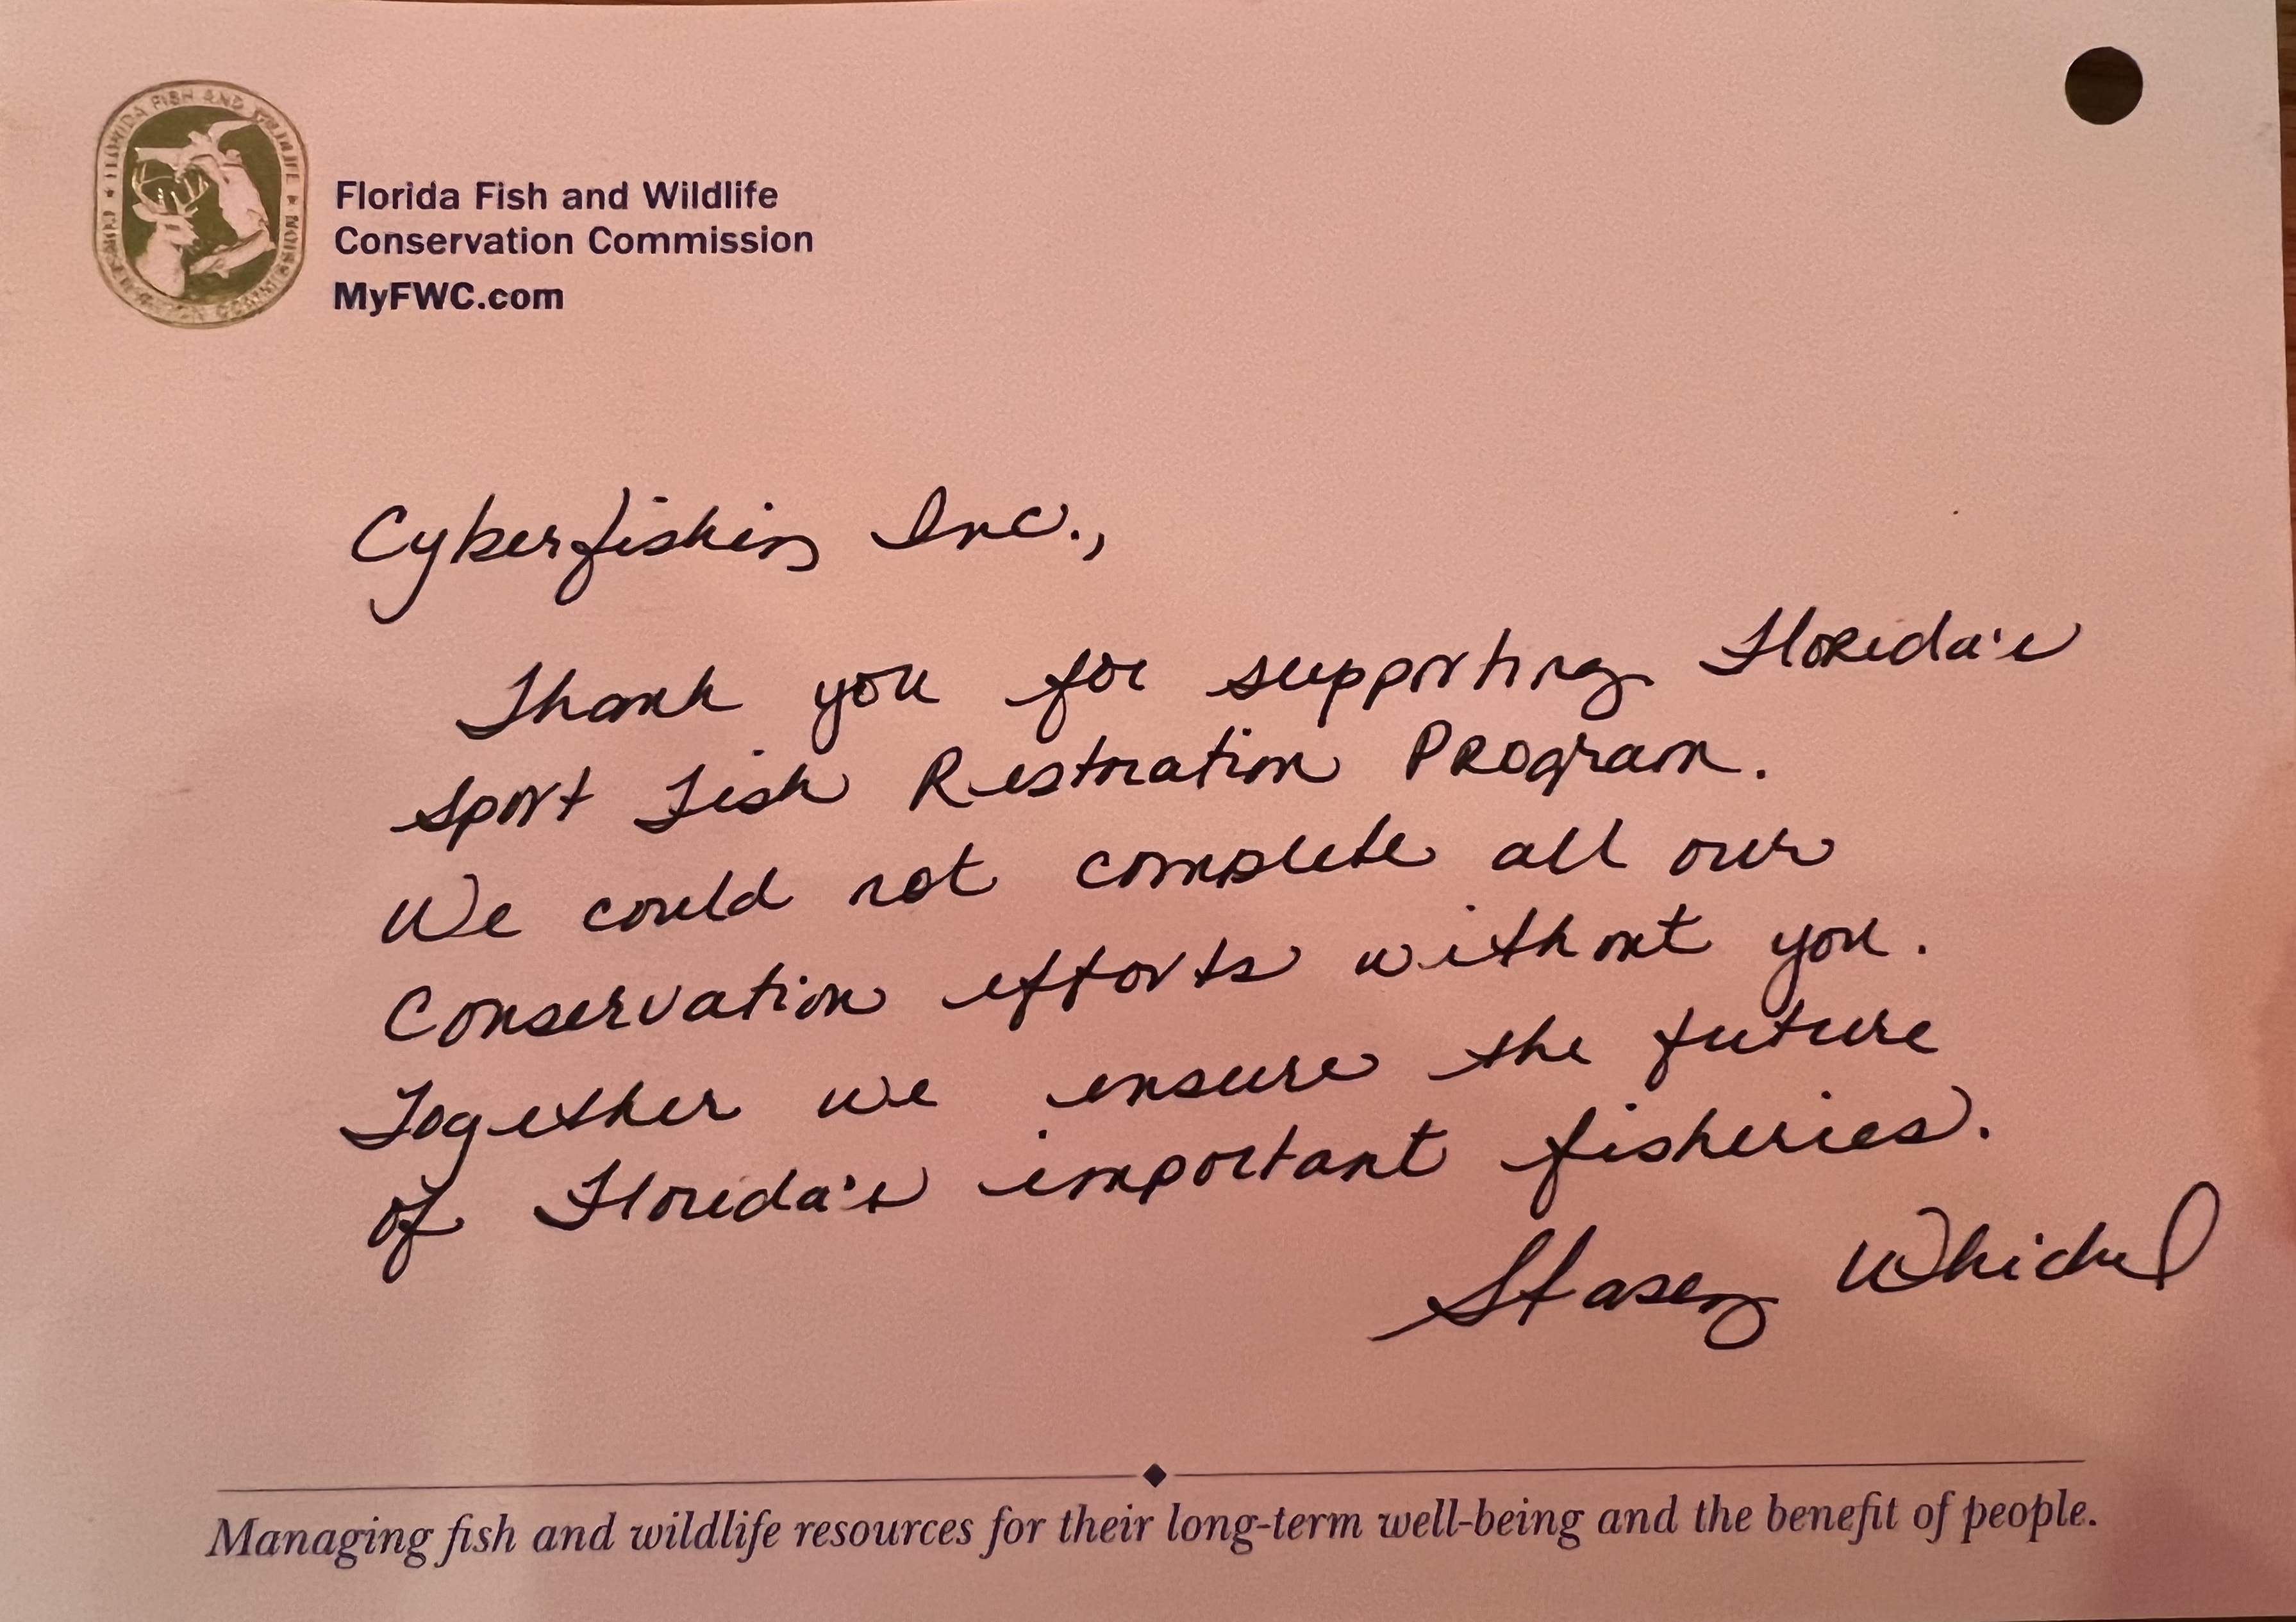 FLORIDA FISH AND WILDLIFE CONSERVATION COMMISSION
Florida Fish and Wildlife
Conservation Commission
MyFWC.com
Cyberfishing Inc.,
Thank you for supporting Florida's
Sport Fish Restoration Program.
We could not complete all our
Conservation efforts without you.
Together we ensure the future
of Florida's important fisheries.
Stasey Whichel
Managing fish and wildlife resources for their long-term well-being and the benefit of people.